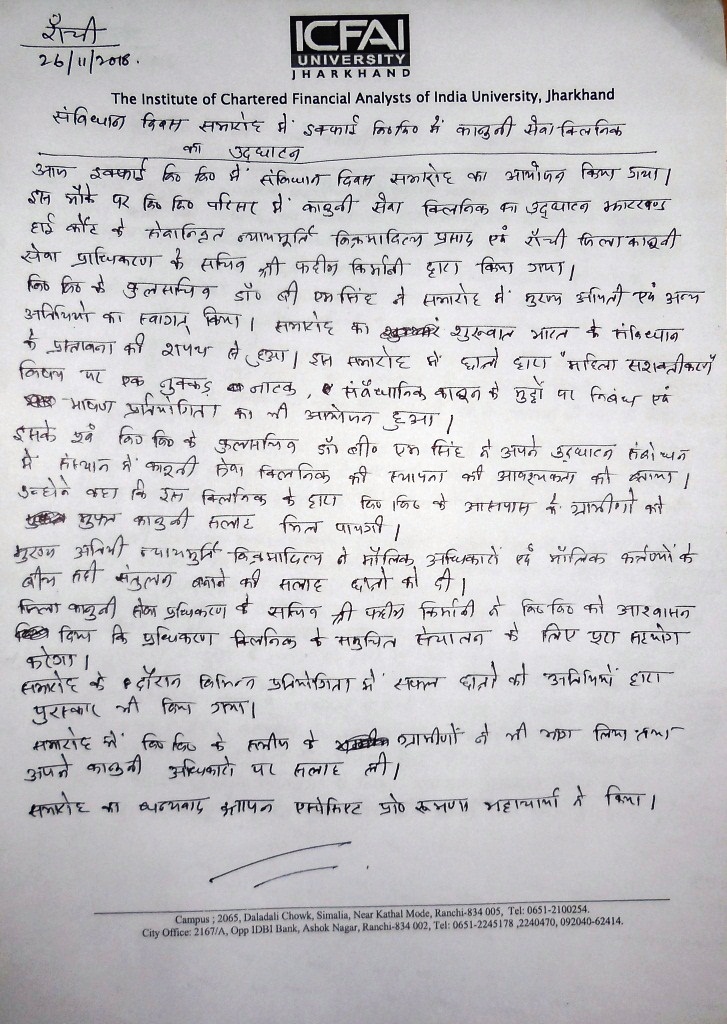 राँची
26/11/2018.
ICFAI
UNIVERSITY
JHARKHAND
The Institute of Chartered Financial Analysts of India University, Jharkhand
संविधान दिवस समारोह में इक्फाई वि० वि० में कानुनी सेवा क्लिनिक
का उद्घाटन
आज इक्फाई वि० वि० में संविधान दिवस समारोह का आयोजन किया गया।
इस मौके पर वि० वि० परिसर में कानुनी सेवा क्लिनिक का उद्घाटन झारखण्ड
हाई कोर्ट के सेवानिवृत न्यायमूर्ति विक्रमादित्य प्रसाद एवं राँची जिला कानूनी
सेवा प्राधिकरण के सचिव श्री फहीम किर्मानी द्वारा किया गया।
वि० वि० के कुलसचिव डॉ० बी एम सिंह ने समारोह में मुख्य अतिथी एवं अन्य
अतिथियों का स्वागत् किया। समारोह का शुरुवात भारत के संविधान
के प्रस्तावना की शपथ से हुआ। इस समारोह में छात्रो द्वारा "महिला सशक्तीकरण"
विषय पर एक नुक्कड़ नाटक, संवैधानिक कानून के मुद्दों पर निबंध एवं
भाषण प्रतियोगिता का भी आयोजन हुआ।
इसके पूर्व वि० वि० के कुलसचिव डॉ० बी० एम सिंह ने अपने उद्घाटन संबोधन
में संस्थान में कानूनी सेवा क्लिनिक की स्थापना की आवश्यकता को बताया।
उन्होने कहा कि इस क्लिनिक के द्वारा वि० वि० के आसपास के ग्रामीणों को
मुफ्त कानुनी सलाह मिल पायगी।
मुख्य अतिथी न्यायमुर्ति विक्रमादित्य ने मौलिक अधिकारों एवं मौलिक कर्तव्यों के
बीच सही संतुलन बनाने की सलाह छात्रो को दी।
जिला कानुनी सेवा प्रधिकरण के सचिव श्री फहीम किर्मानी ने वि० वि० को आश्वासन
दिया कि प्रधिकरण क्लिनिक के समुचित संचालन के लिए पुरा सहयोग
करेगा।
समारोह के दौरान विभिन्न प्रतियोगिता में सफल छात्रो को अतिथियों द्वारा
पुरस्कार भी दिया गया।
समारोह में वि० वि० के समीप के ग्रामीणों ने भी भाग लिया तथा
अपने कानुनी अधिकारों पर सलाह ली।
समारोह का धन्यवाद ज्ञापन एसोसिएट प्रो० रूमणा भट्टाचार्या ने किया।
Campus ; 2065, Daladali Chowk, Simalia, Near Kathal Mode, Ranchi-834 005, Tel: 0651-2100254.
City Office: 2167/A, Opp IDBI Bank, Ashok Nagar, Ranchi-834 002, Tel: 0651-2245178 ,2240470, 092040-62414.